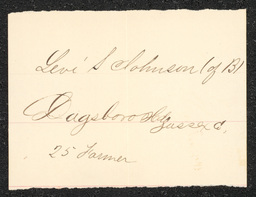 Levi S Johnson (of B)
Dagsboro Hd Sussex Co.
25 Farmer